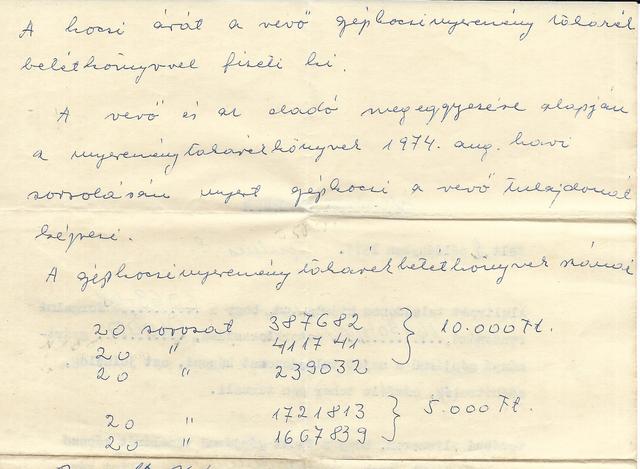 A kocsi árát a vevő gépkocsinyeremény takarék
betétkönyvvel fizeti ki.
A vevő és az eladó megegyezése alapján
a nyereménytakarékkönyvek 1974. aug. havi
sorsolásán nyert gépkocsi a vevő tulajdonát
képezi.
A gépkocsinyereménytakarékbetétkönyvek számai
20 sorosat 387682
20 " 411741 } 10.000 Ft.
20 " 239032
20 " 1721813 } 5.000 Ft.
20 " 1667839